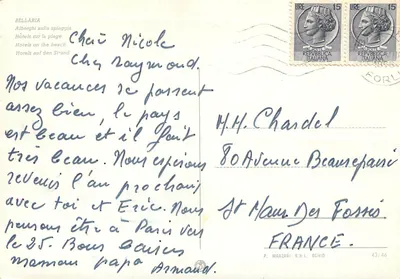 BELLARIA
Alberghi sulla spiaggia
Hôtels sur la plage
Hotels on the beach
Hotels auf den Strand
Cher Nicole
Cher Raymond.
Nos vacances se passent
assez bien, le pays
est beau et il fait
très beau. Nous espérons
revenir l'an prochain
avec toi et Eric. Nous
pensons être à Paris vers
le 25. Bons baisers
maman papa Armand.
15
15
FORLI
M.H. Chardel
80 Avenue Beaurepaire
St Maur Des Fossés
FRANCE.